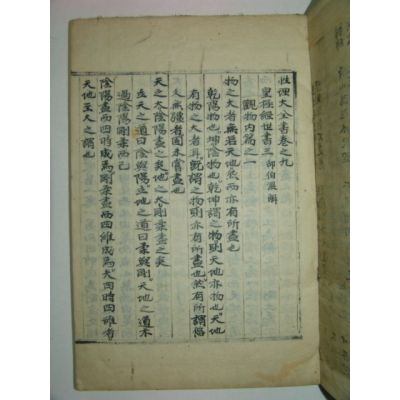 性理大全書卷之九
皇極經世書三 邵伯溫解
觀物內篇之一
物之大者無若天地然而亦有所盡也
乾陽物也坤陰物也乾坤謂之物則天地亦物也天地
有物之大者耳旣謂之物則亦有所盡也然有所謂悠
久無疆者固未嘗盡也
天之大陰陽盡之矣地之大剛柔盡之矣
立天之道曰陰與陽立地之道曰柔與剛天地之道不
過陰陽剛柔而已
陰陽盡而四時成焉剛柔盡而四維成焉夫四時四維者
天地至大之謂也